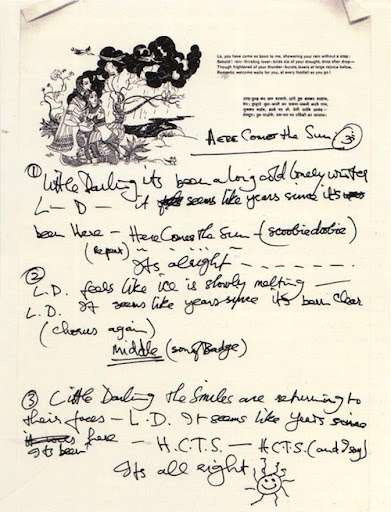 Lo, you have come so soon to me, showering your rain without a stop :
Behold ! rain-thirsting lover-birds sip of your draught, drop after drop—
Though frightened of your thunder-bursts, lovers at large rejoice below,
Romantic welcome waits for you, at every footfall as you go !
Here Comes the Sun / ॐ
① Little Darling its been a long cold lonely winter
L — D — it seems like years since its
been Here — Here Comes the Sun — (scoobie dobie)
(repeat)
Its alright
② L.D. feels like ice is slowly melting —
L.D. It seems like years since its been clear
(chorus again)
Middle (song Badge)
③ Little Darling the Smiles are returning to
their faces — L.D. It seems like years since
its been here — H.C.T.S. — H.C.T.S. (and I say)
Its all right